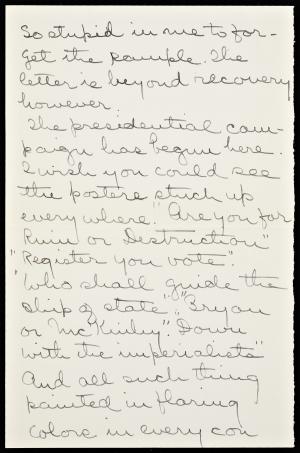 So stupid in me to for-
get the sample. The
letter is beyond recovery
however.
The presidential cam-
paign has begun here.
I wish you could see
the posters stuck up
every where. "Are you for
Ruin or Destruction"
"Register you vote".
"Who shall guide the
ship of state". "Bryan
or McKinley". "Down
with the imperialists"
And all such thing
painted in flaring
colors in every con